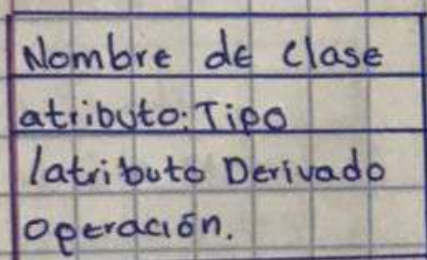 Nombre de clase
atributo: Tipo
/atributo Derivado
operación.